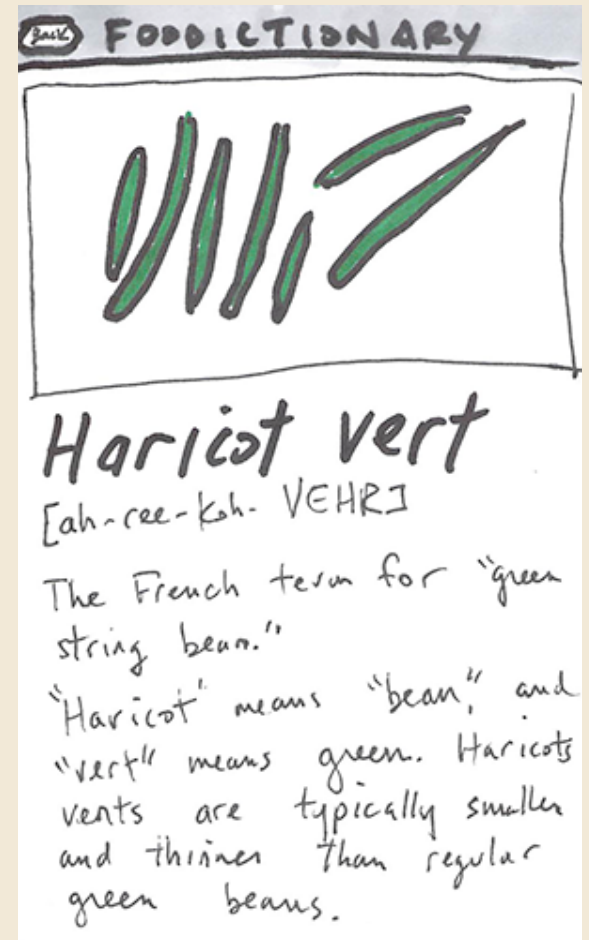 Back FOODICTIONARY
Haricot vert
[ah-ree-koh-VEHR]
The French term for "green
string bean."
"Haricot" means "bean," and
"vert" means green. Haricots
verts are typically smaller
and thinner than regular
green beans.